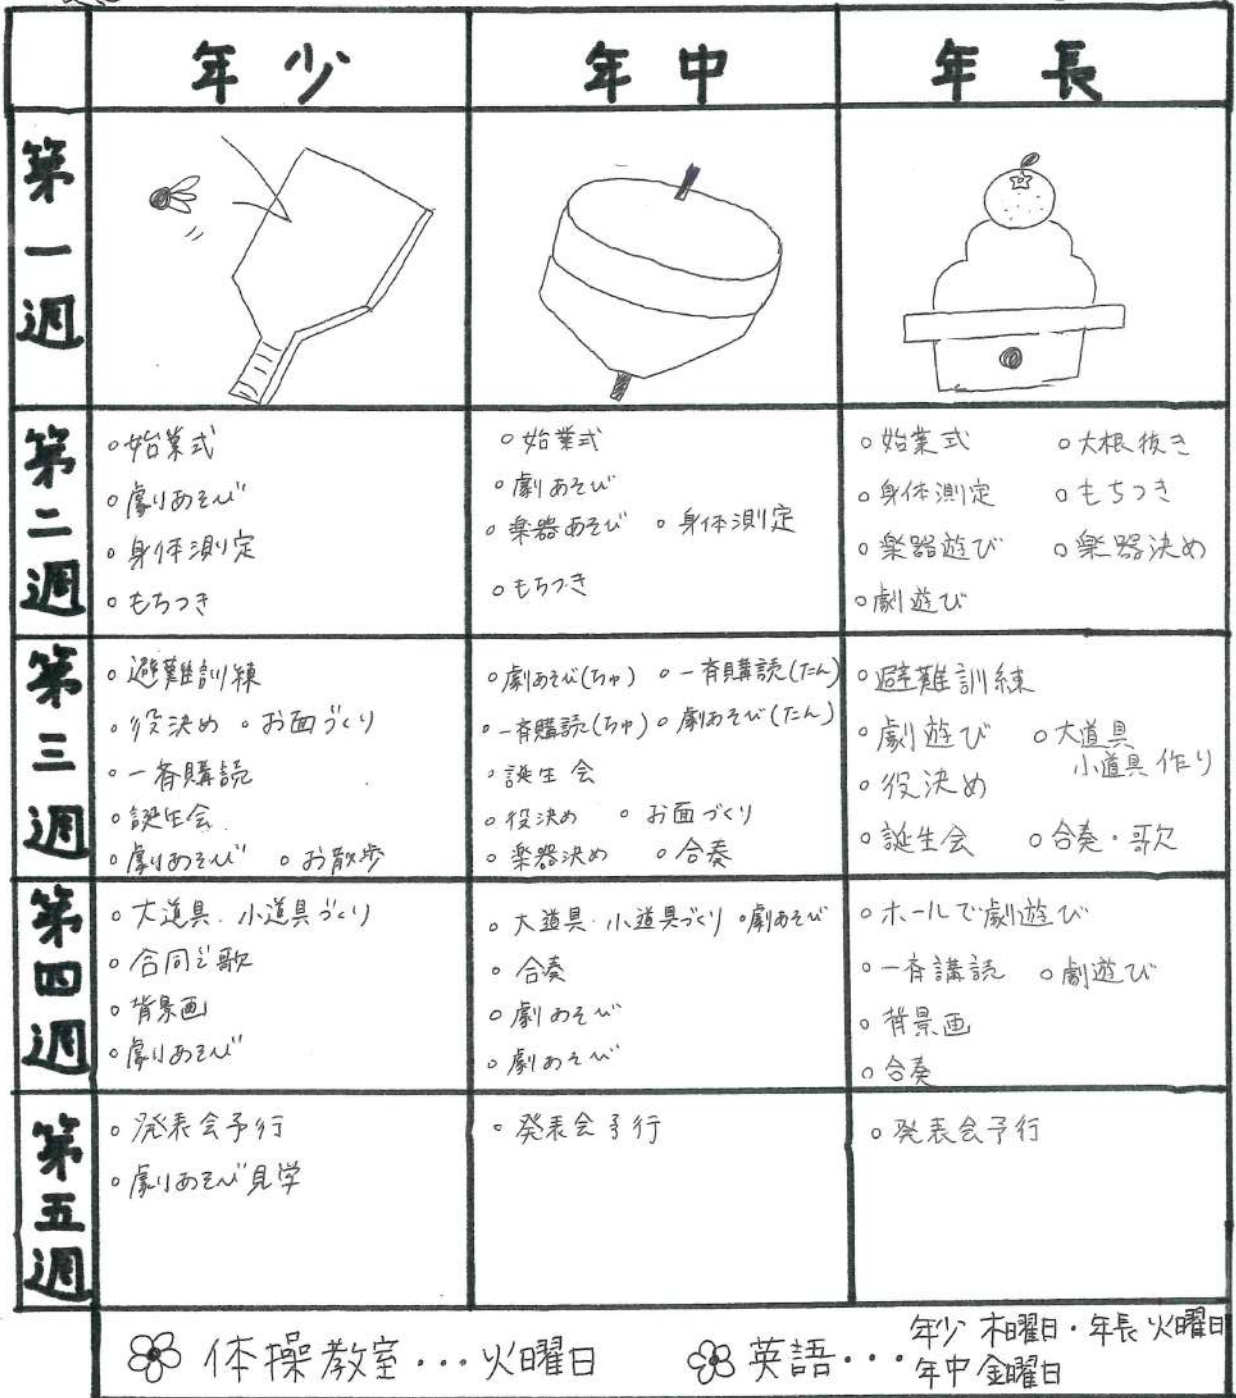 年少 年中 年長
第一週
第二週
○始業式
○劇あそび
○身体測定
○もちつき
○始業式
○劇あそび
○楽器あそび ○身体測定
○もちつき
○始業式 ○大根抜き
○身体測定 ○もちつき
○楽器遊び ○楽器決め
○劇遊び
第三週
○避難訓練
○役決め ○お面づくり
○一斉購読
○誕生会
○劇あそび ○お散歩
○劇あそび(ちゅ) ○一斉購読(たん)
○一斉購読(ちゅ) ○劇あそび(たん)
○誕生会
○役決め ○お面づくり
○楽器決め ○合奏
○避難訓練
○劇遊び ○大道具
小道具作り
○役決め
○誕生会 ○合奏・歌
第四週
○大道具・小道具づくり
○合同で歌
○背景画
○劇あそび
○大道具・小道具づくり ○劇あそび
○合奏
○劇あそび
○劇あそび
○ホールで劇遊び
○一斉講読 ○劇遊び
○背景画
○合奏
第五週
○発表会予行
○劇あそび見学
○発表会予行
○発表会予行
体操教室・・・火曜日
英語・・・年少 木曜日・年長 火曜日
年中 金曜日